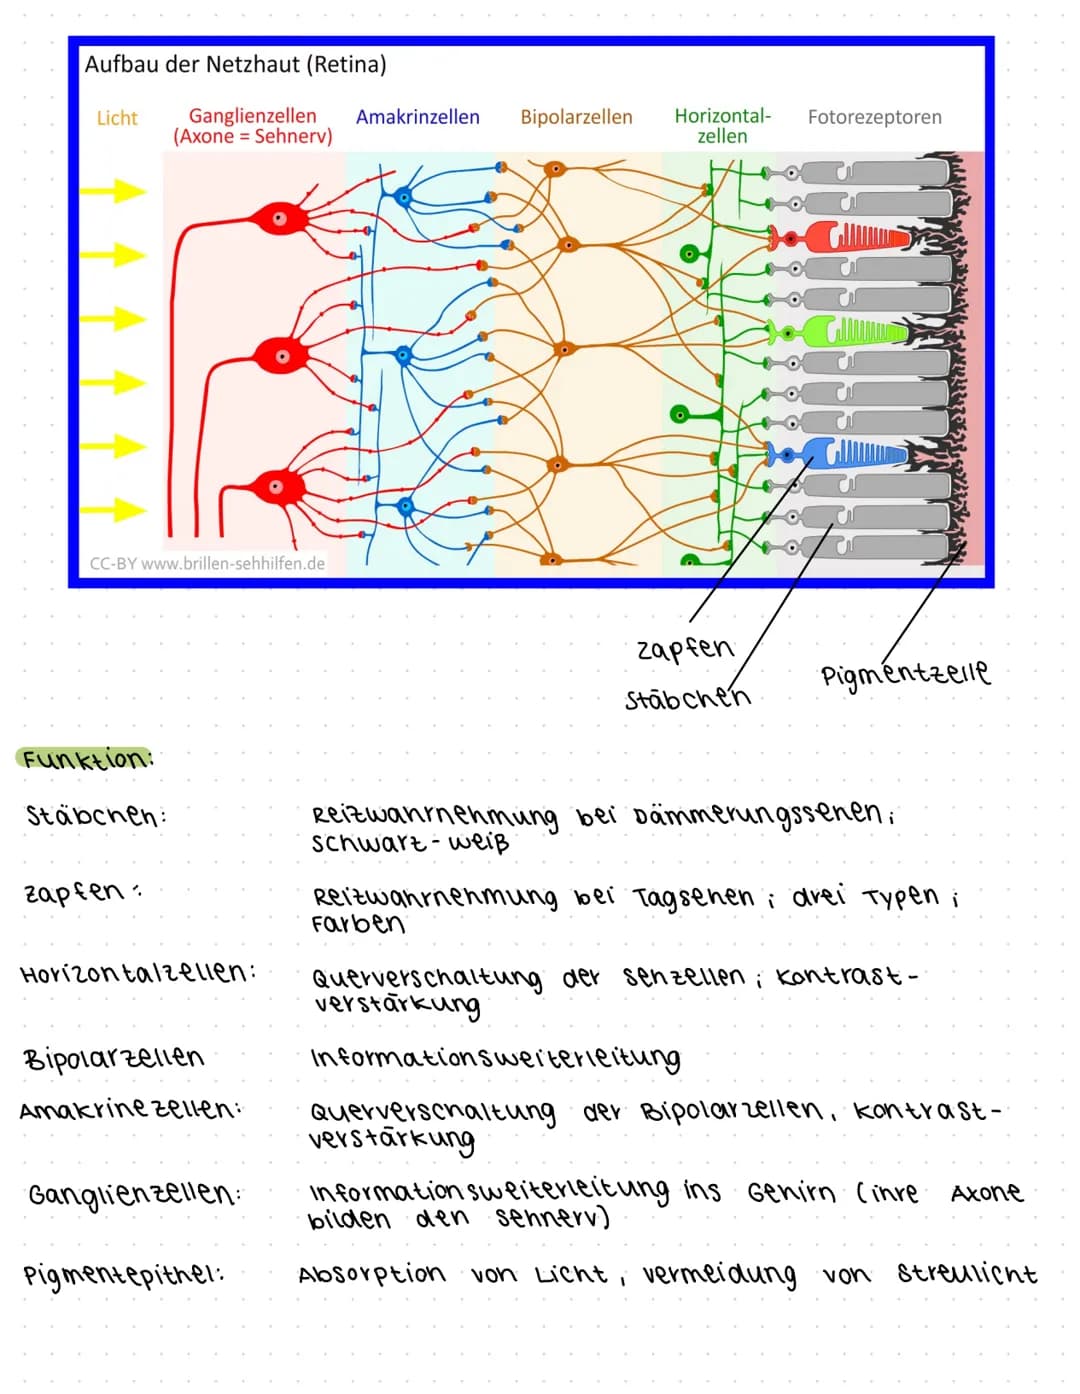 Aufbau der Netzhaut (Retina)
Licht
Ganglienzellen
(Axone = Sehnerv)
Amakrinzellen
Bipolarzellen
Horizontal-
zellen
Fotorezeptoren
CC-BY www.brillen-sehhilfen.de
Zapfen
Stäbchen
Pigmentzelle
Funktion:
Stäbchen: Reizwahrnehmung bei Dämmerungssehen;
schwarz-weiß
Zapfen: Reizwahrnehmung bei Tagsehen; drei Typen;
Farben
Horizontalzellen: Querverschaltung der Sehzellen; Kontrast-
verstärkung
Bipolarzellen Informationsweiterleitung
Amakrinezellen: Querverschaltung der Bipolarzellen, Kontrast-
verstärkung
Ganglienzellen: Informationsweiterleitung ins Gehirn (ihre Axone
bilden den Sehnerv)
Pigmentepithel: Absorption von Licht, Vermeidung von Streulicht